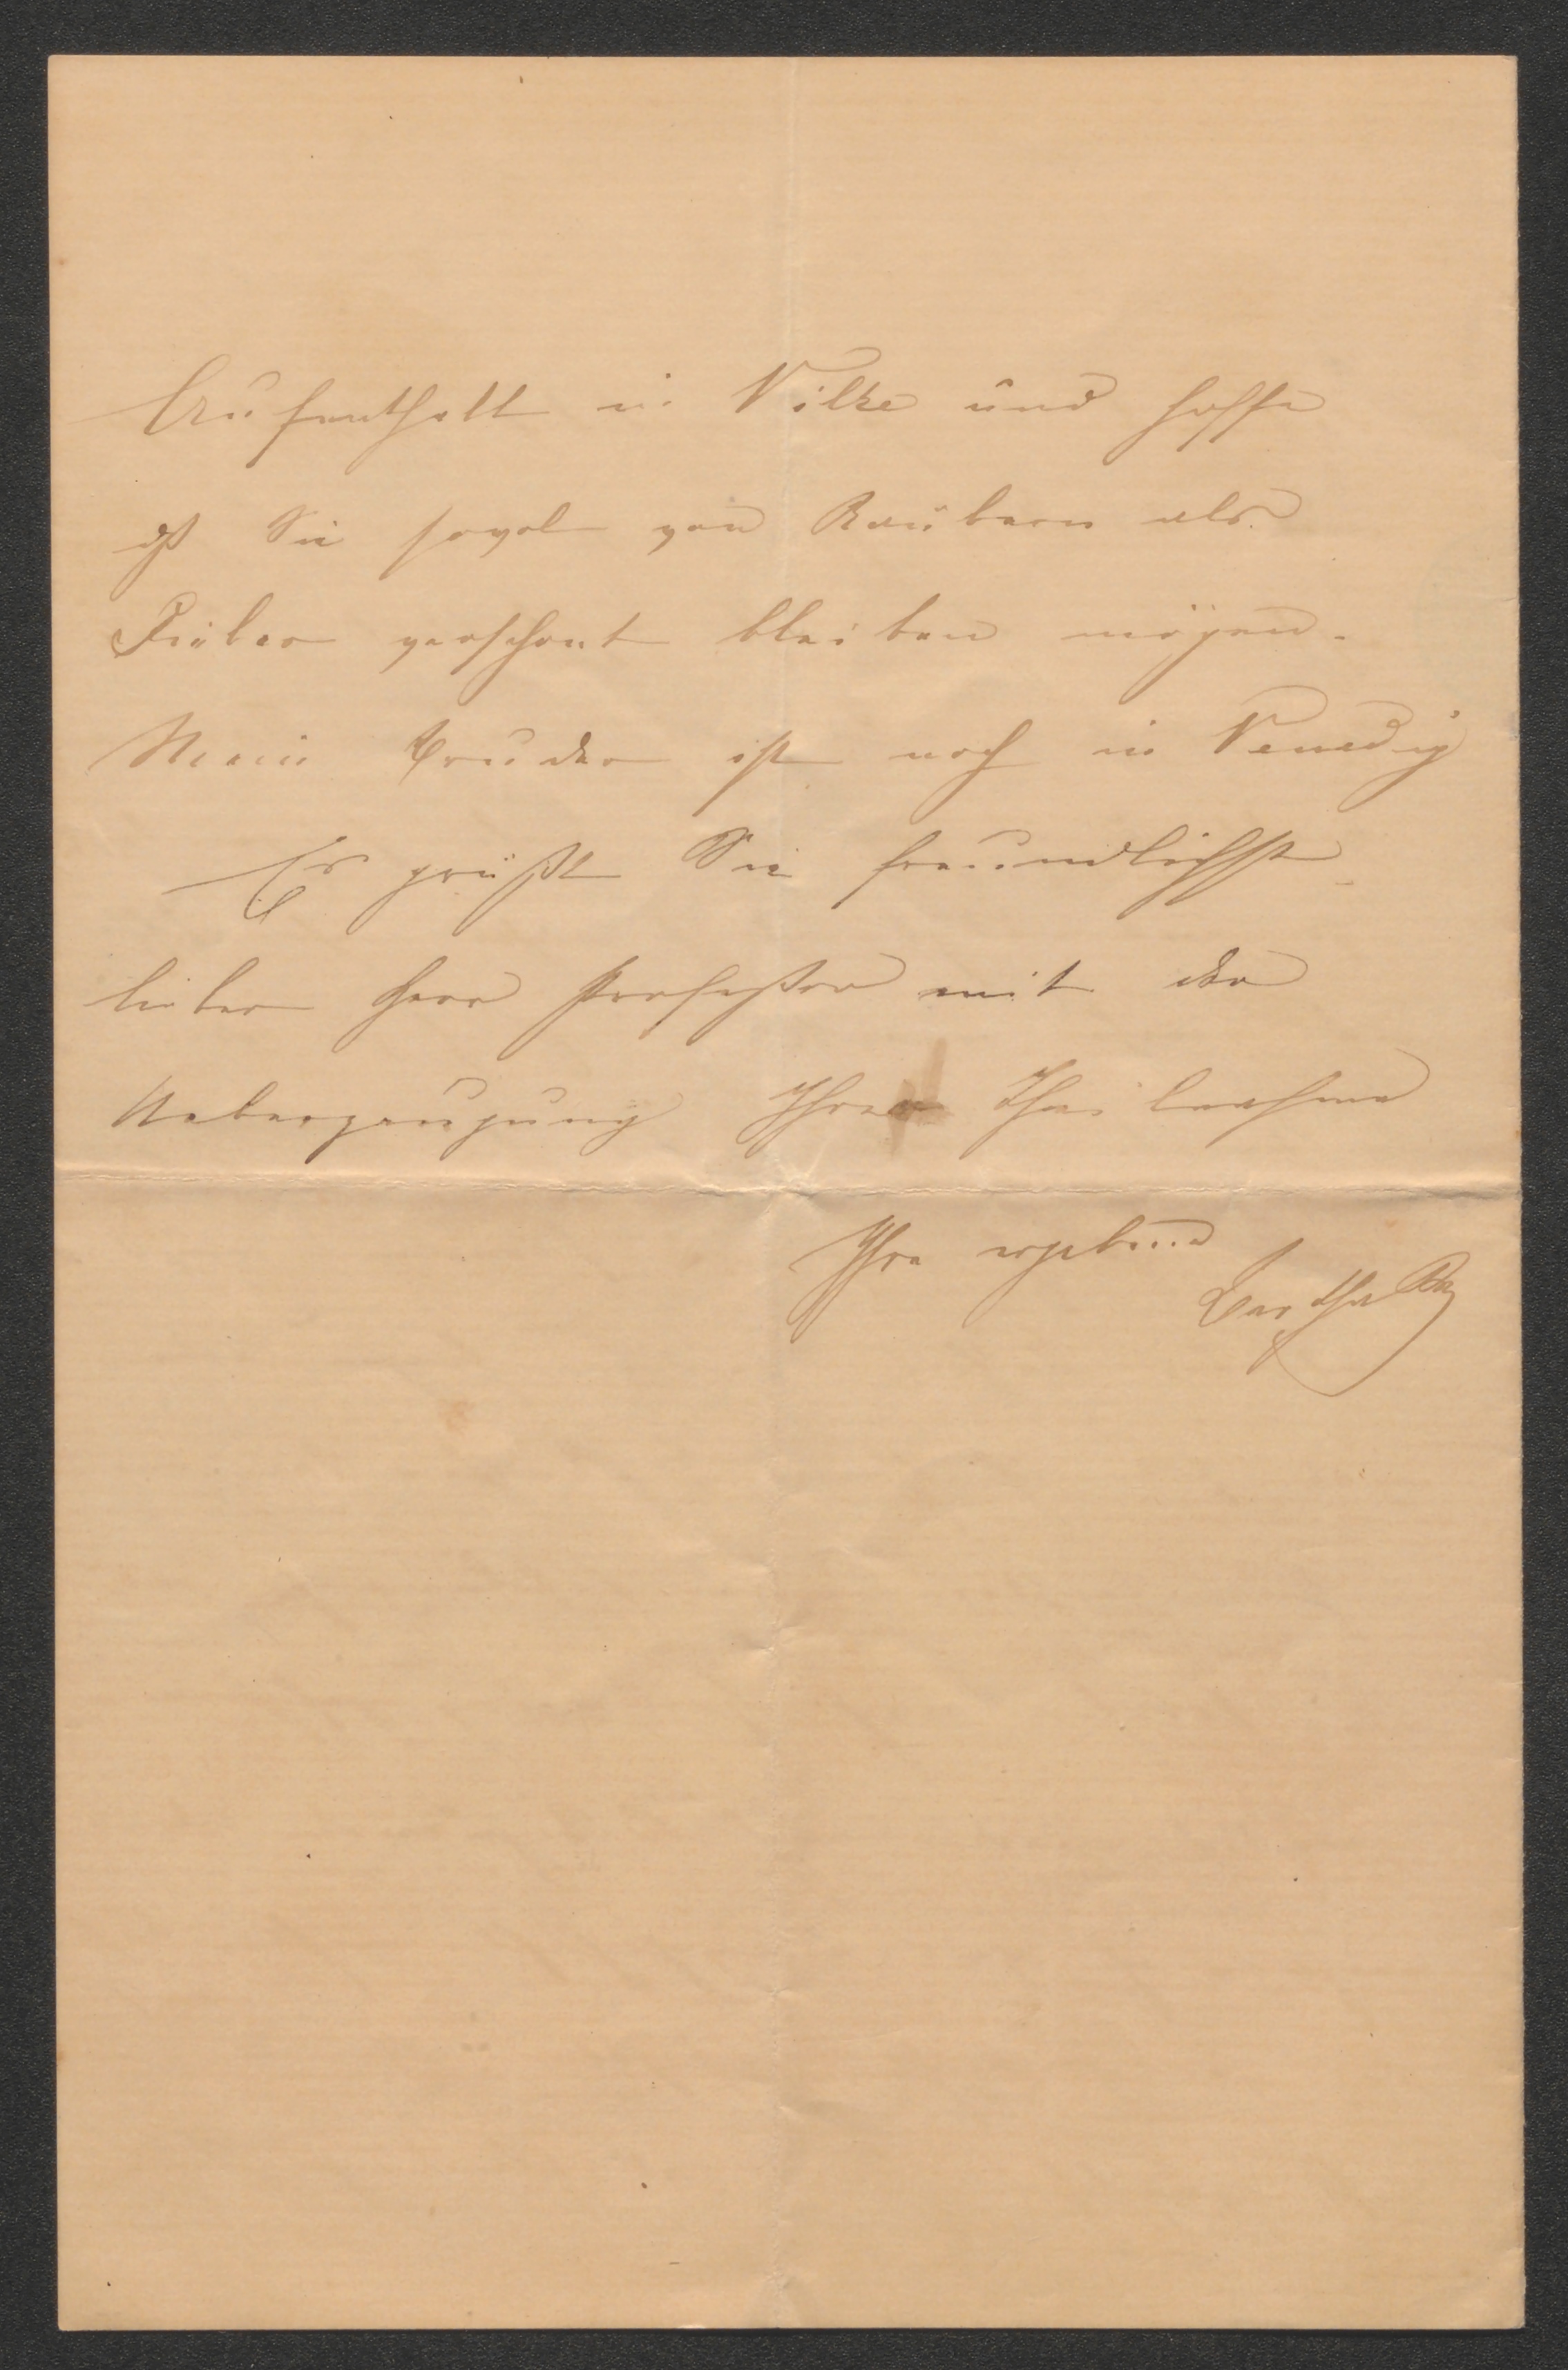 Aufenthalt in Vilke und hoffe
dß Sie sowol von Räubern als
Fieber verschont bleiben mögen.
Mein Bruder ist noch in Venedig
Es grüßt Sie freundlichst
lieber Herr Professor mit der
Ueberzeugung Ihrer Theilnahme
Ihre ergebene
Bertha